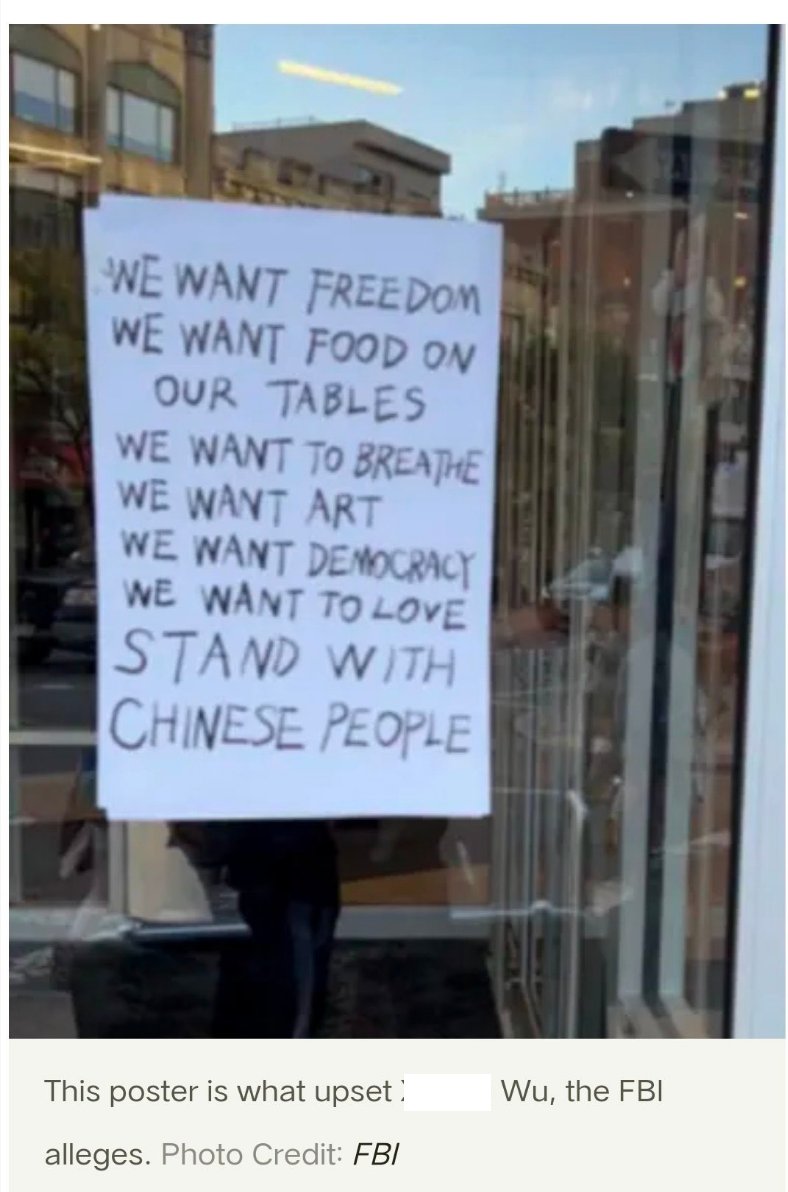 WE WANT FREEDOM
WE WANT FOOD ON
OUR TABLES
WE WANT TO BREATHE
WE WANT ART
WE WANT DEMOCRACY
WE WANT TO LOVE
STAND WITH
CHINESE PEOPLE
This poster is what upset Wu, the FBI
alleges. Photo Credit: FBI